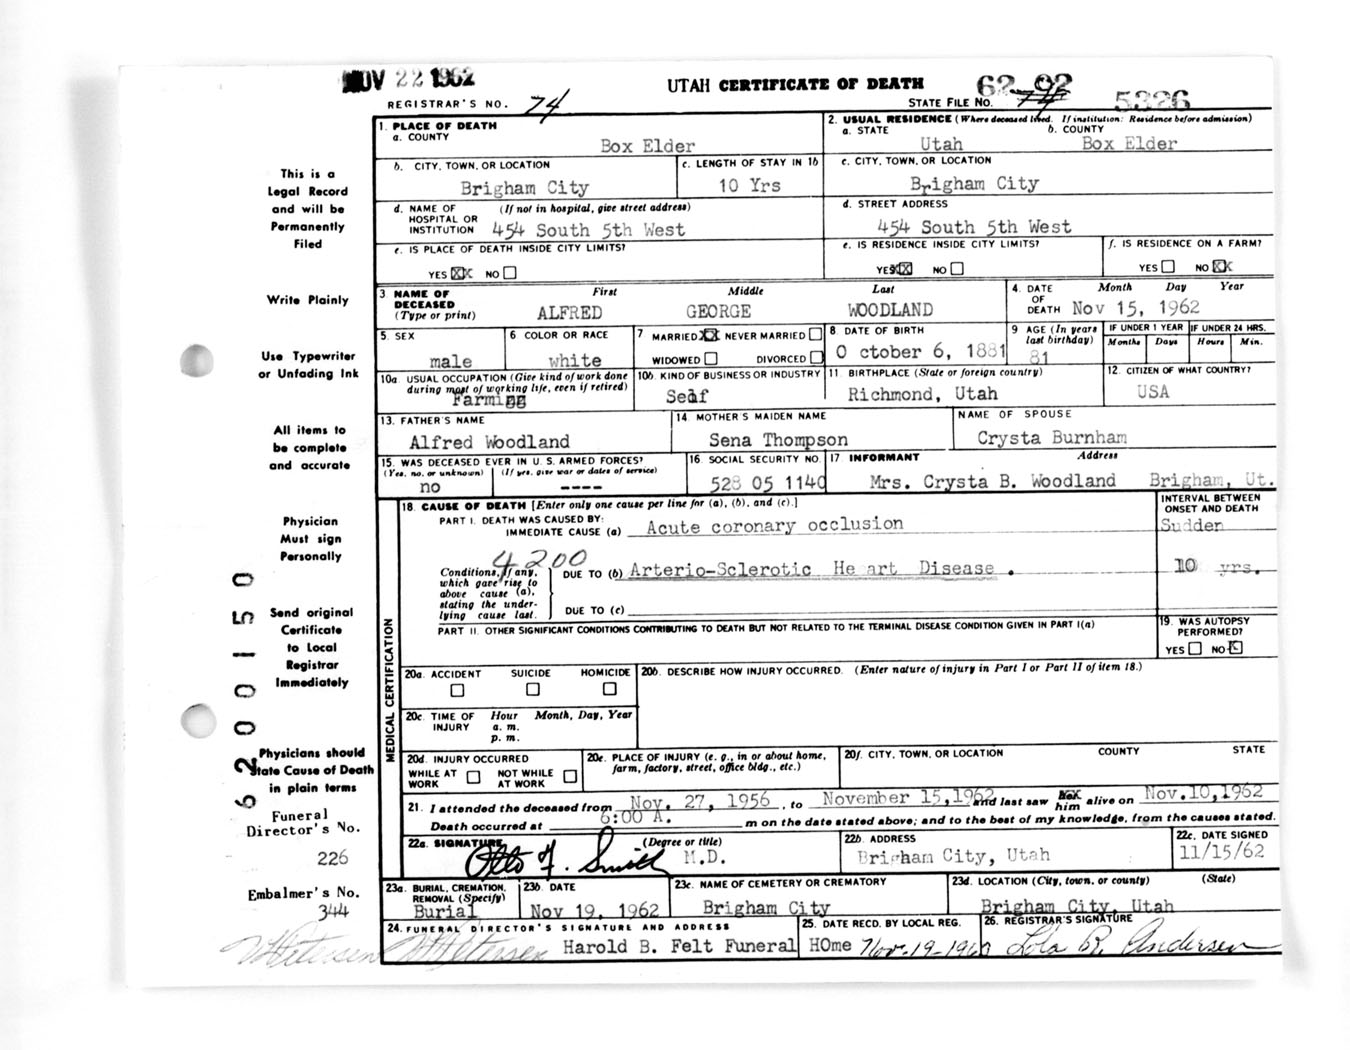 NOV 22 1962
UTAH CERTIFICATE OF DEATH
62-02
REGISTRAR'S NO. 74
STATE FILE NO. 74 5326
1. PLACE OF DEATH
a. COUNTY
Box Elder
2. USUAL RESIDENCE (Where deceased lived. If institution: Residence before admission)
a. STATE b. COUNTY
Utah Box Elder
b. CITY, TOWN, OR LOCATION
Brigham City
c. LENGTH OF STAY IN 1b
10 Yrs
c. CITY, TOWN, OR LOCATION
Brigham City
d. NAME OF HOSPITAL OR INSTITUTION (If not in hospital, give street address)
454 South 5th West
d. STREET ADDRESS
454 South 5th West
e. IS PLACE OF DEATH INSIDE CITY LIMITS?
YES XX NO
e. IS RESIDENCE INSIDE CITY LIMITS?
YES XX NO
f. IS RESIDENCE ON A FARM?
YES NO XX
3. NAME OF DECEASED (Type or print)
First Middle Last
ALFRED GEORGE WOODLAND
4. DATE OF DEATH
Month Day Year
Nov 15, 1962
5. SEX
male
6 COLOR OR RACE
white
7 MARRIED XX NEVER MARRIED
WIDOWED DIVORCED
8. DATE OF BIRTH
O ctober 6, 1881
9 AGE (In years last birthday)
81
IF UNDER 1 YEAR IF UNDER 24 HRS.
Months Days Hours Min.
10a. USUAL OCCUPATION (Give kind of work done during most of working life, even if retired)
10b. KIND OF BUSINESS OR INDUSTRY
11. BIRTHPLACE (State or foreign country)
Richmond, Utah
12. CITIZEN OF WHAT COUNTRY?
USA
13. FATHER'S NAME
Alfred Woodland
14 MOTHER'S MAIDEN NAME
Sena Thompson
NAME OF SPOUSE
Crysta Burnham
15. WAS DECEASED EVER IN U. S. ARMED FORCES?
(Yes, no, or unknown) (If yes, give war or dates of service)
no ----
16 SOCIAL SECURITY NO.
528 05 1140
17 INFORMANT Address
Mrs. Crysta B. Woodland Brigham, Ut.
18. CAUSE OF DEATH [Enter only one cause per line for (a), (b), and (c).]
INTERVAL BETWEEN ONSET AND DEATH
PART I. DEATH WAS CAUSED BY:
IMMEDIATE CAUSE (a) Acute coronary occlusion
Sudden
4200
Conditions, if any, which gave rise to above cause (a), stating the underlying cause last.
DUE TO (b) Arterio-Sclerotic Heart Disease .
10 yrs.
DUE TO (c)
PART II. OTHER SIGNIFICANT CONDITIONS CONTRIBUTING TO DEATH BUT NOT RELATED TO THE TERMINAL DISEASE CONDITION GIVEN IN PART I(a)
19. WAS AUTOPSY PERFORMED?
YES NO X
MEDICAL CERTIFICATION
20a. ACCIDENT SUICIDE HOMICIDE
20b. DESCRIBE HOW INJURY OCCURRED. (Enter nature of injury in Part I or Part II of item 18.)
20c. TIME OF INJURY
Hour Month, Day, Year
a. m.
p. m.
20d. INJURY OCCURRED
WHILE AT WORK NOT WHILE AT WORK
20e. PLACE OF INJURY (e. g., in or about home, farm, factory, street, office bldg., etc.)
20f. CITY, TOWN, OR LOCATION COUNTY STATE
21. I attended the deceased from Nov. 27, 1956 , to November 15,1962 and last saw him alive on Nov.10,1962
Death occurred at 6:00 A. m on the date stated above; and to the best of my knowledge, from the causes stated.
22a. SIGNATURE (Degree or title)
Otto F. Smith M.D.
22b. ADDRESS
Brigham City, Utah
22c. DATE SIGNED
11/15/62
23a. BURIAL, CREMATION, REMOVAL (Specify)
Burial
23b. DATE
Nov 19, 1962
23c. NAME OF CEMETERY OR CREMATORY
Brigham City
23d. LOCATION (City, town, or county) (State)
Brigham City, Utah
24. FUNERAL DIRECTOR'S SIGNATURE AND ADDRESS
Harold B. Felt Funeral HOme
25. DATE RECD. BY LOCAL REG.
Nov-19-1962
26. REGISTRAR'S SIGNATURE
Lola R. Andersen
This is a
Legal Record
and will be
Permanently
Filed
Write Plainly
Use Typewriter
or Unfading Ink
All items to
be complete
and accurate
Physician
Must sign
Personally
Send original
Certificate
to Local
Registrar
Immediately
Physicians should
State Cause of Death
in plain terms
Funeral
Director's No.
226
Embalmer's No.
344
62 00 150